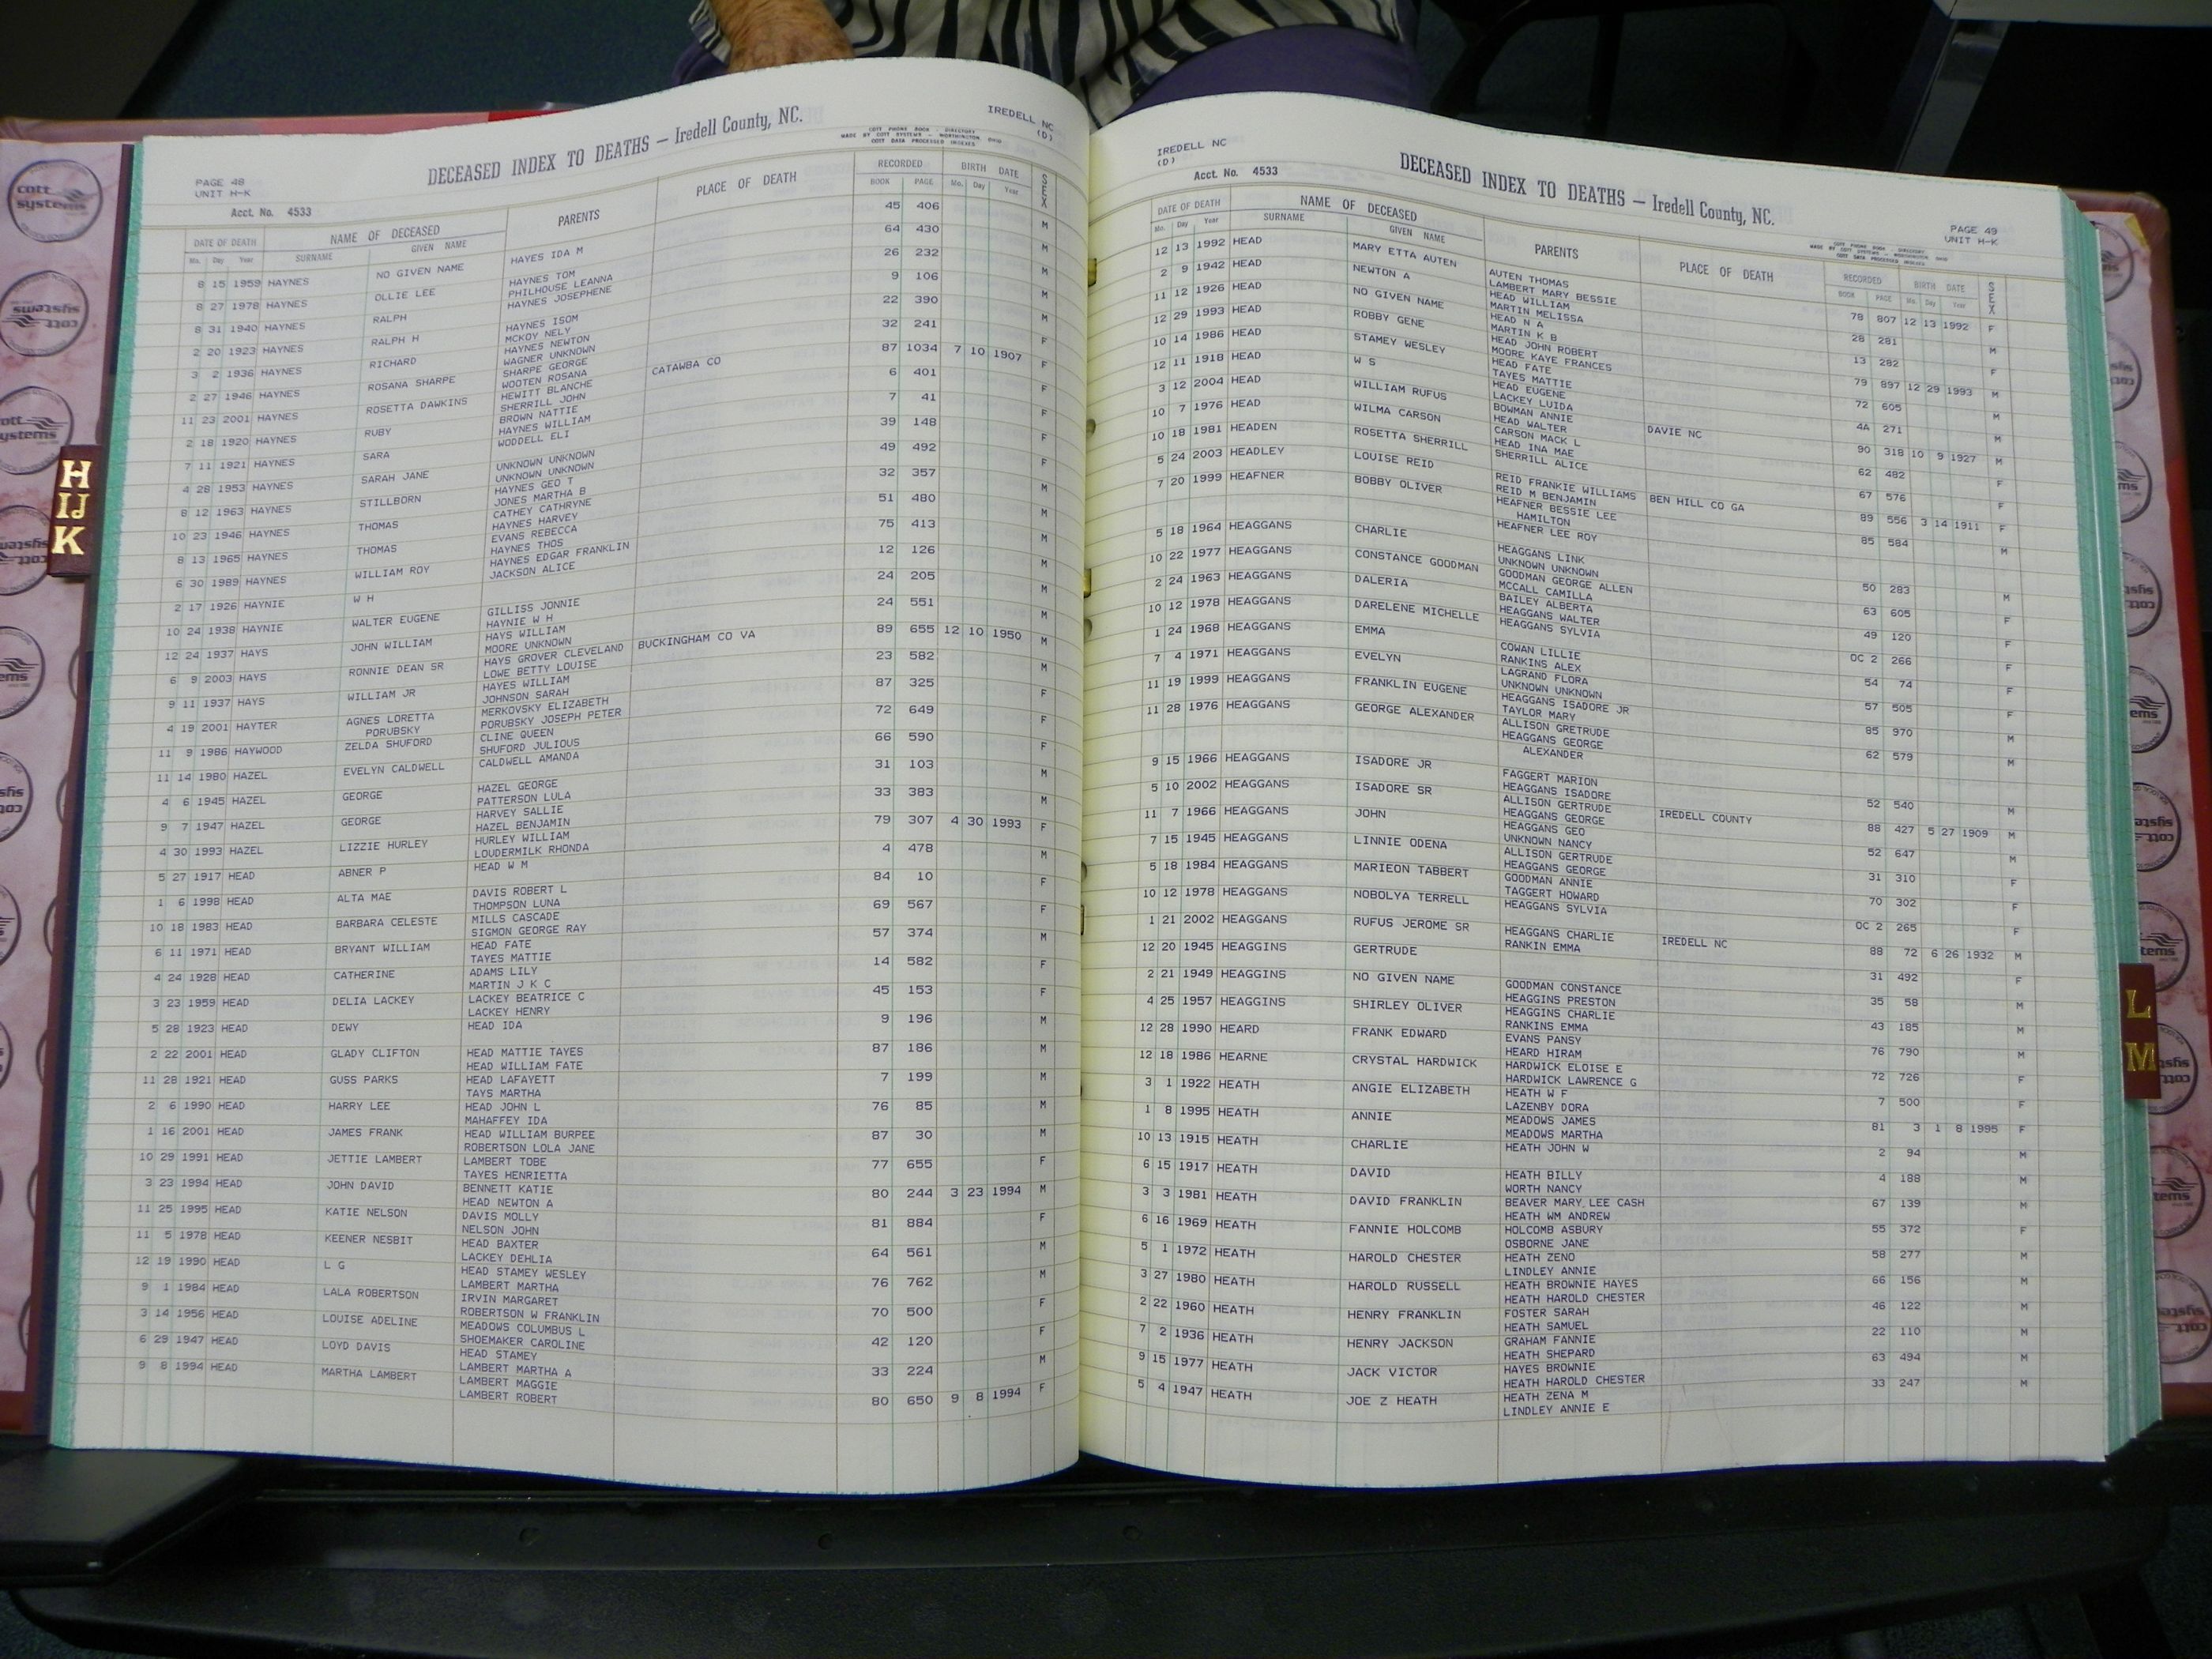 DECEASED INDEX TO DEATHS — Iredell County, NC.
IREDELL NC
(D)
COTT PHONE BOOK - DIRECTORY
MADE BY COTT SYSTEMS - WORTHINGTON, OHIO
COTT DATA PROCESSED INDEXES
PAGE 48
UNIT H-K
Acct. No. 4533
DATE OF DEATH NAME OF DECEASED PARENTS PLACE OF DEATH RECORDED BIRTH DATE SEX
Mo. Day Year SURNAME GIVEN NAME BOOK PAGE Mo. Day Year
8 15 1959 HAYNES NO GIVEN NAME HAYES IDA M 45 406 M
8 27 1978 HAYNES OLLIE LEE HAYNES TOM 64 430 M
PHILHOUSE LEANNA
8 31 1940 HAYNES RALPH HAYNES JOSEPHENE 26 232 M
2 20 1923 HAYNES RALPH H HAYNES ISOM 9 106
MCKOY NELY
3 2 1936 HAYNES RICHARD HAYNES NEWTON 22 390 M
WAGNER UNKNOWN
2 27 1946 HAYNES ROSANA SHARPE SHARPE GEORGE 32 241 F
WOOTEN ROSANA
11 23 2001 HAYNES ROSETTA DAWKINS HEWITT BLANCHE CATAWBA CO 87 1034 7 10 1907 F
SHERRILL JOHN
2 18 1920 HAYNES RUBY BROWN NATTIE 6 401 F
HAYNES WILLIAM
7 11 1921 HAYNES SARA WODDELL ELI 7 41 F
4 28 1953 HAYNES SARAH JANE UNKNOWN UNKNOWN 39 148 F
UNKNOWN UNKNOWN
8 12 1963 HAYNES STILLBORN HAYNES GEO T 49 492 F
JONES MARTHA B
10 23 1946 HAYNES THOMAS CATHEY CATHRYNE 32 357 M
HAYNES HARVEY
8 13 1965 HAYNES THOMAS EVANS REBECCA 51 480 M
HAYNES THOS
6 30 1989 HAYNES WILLIAM ROY HAYNES EDGAR FRANKLIN 75 413 M
JACKSON ALICE
2 17 1926 HAYNIE W H 12 126 M
10 24 1938 HAYNIE WALTER EUGENE GILLISS JONNIE 24 205 M
HAYNIE W H
12 24 1937 HAYS JOHN WILLIAM HAYS WILLIAM 24 551 M
MOORE UNKNOWN
6 9 2003 HAYS RONNIE DEAN SR HAYS GROVER CLEVELAND BUCKINGHAM CO VA 89 655 12 10 1950 M
LOWE BETTY LOUISE
9 11 1937 HAYS WILLIAM JR HAYES WILLIAM 23 582 M
JOHNSON SARAH
4 19 2001 HAYTER AGNES LORETTA MERKOVSKY ELIZABETH 87 325 F
PORUBSKY PORUBSKY JOSEPH PETER
11 9 1986 HAYWOOD ZELDA SHUFORD CLINE QUEEN 72 649 F
SHUFORD JULIOUS
11 14 1980 HAZEL EVELYN CALDWELL CALDWELL AMANDA 66 590 F
4 6 1945 HAZEL GEORGE HAZEL GEORGE 31 103 M
PATTERSON LULA
9 7 1947 HAZEL GEORGE HARVEY SALLIE 33 383 M
HAZEL BENJAMIN
4 30 1993 HAZEL LIZZIE HURLEY HURLEY WILLIAM 79 307 4 30 1993 F
LOUDERMILK RHONDA
5 27 1917 HEAD ABNER P HEAD W M 4 478 M
1 6 1998 HEAD ALTA MAE DAVIS ROBERT L 84 10 F
THOMPSON LUNA
10 18 1983 HEAD BARBARA CELESTE MILLS CASCADE 69 567 F
SIGMON GEORGE RAY
6 11 1971 HEAD BRYANT WILLIAM HEAD FATE 57 374 M
TAYES MATTIE
4 24 1928 HEAD CATHERINE ADAMS LILY 14 582 F
MARTIN J K C
3 23 1959 HEAD DELIA LACKEY LACKEY BEATRICE C 45 153 F
LACKEY HENRY
5 28 1923 HEAD DEWY HEAD IDA 9 196 M
2 22 2001 HEAD GLADY CLIFTON HEAD MATTIE TAYES 87 186 M
HEAD WILLIAM FATE
11 28 1921 HEAD GUSS PARKS HEAD LAFAYETT 7 199 M
TAYS MARTHA
2 6 1990 HEAD HARRY LEE HEAD JOHN L 76 85 M
MAHAFFEY IDA
1 16 2001 HEAD JAMES FRANK HEAD WILLIAM BURPEE 87 30 M
ROBERTSON LOLA JANE
10 29 1991 HEAD JETTIE LAMBERT LAMBERT TOBE 77 655 F
TAYES HENRIETTA
3 23 1994 HEAD JOHN DAVID BENNETT KATIE 80 244 3 23 1994 M
HEAD NEWTON A
11 25 1995 HEAD KATIE NELSON DAVIS MOLLY 81 884 F
NELSON JOHN
11 5 1978 HEAD KEENER NESBIT HEAD BAXTER 64 561 M
LACKEY DEHLIA
12 19 1990 HEAD L G HEAD STAMEY WESLEY 76 762 M
LAMBERT MARTHA
9 1 1984 HEAD LALA ROBERTSON IRVIN MARGARET 70 500 F
ROBERTSON W FRANKLIN
3 14 1956 HEAD LOUISE ADELINE MEADOWS COLUMBUS L 42 120 F
SHOEMAKER CAROLINE
6 29 1947 HEAD LOYD DAVIS HEAD STAMEY 33 224 M
LAMBERT MARTHA A
9 8 1994 HEAD MARTHA LAMBERT LAMBERT MAGGIE 80 650 9 8 1994 F
LAMBERT ROBERT
H
IJ
K
IREDELL NC
(D)
Acct. No. 4533
DECEASED INDEX TO DEATHS — Iredell County, NC.
PAGE 49
UNIT H-K
COTT PHONE BOOK - DIRECTORY
MADE BY COTT SYSTEMS - WORTHINGTON, OHIO
COTT DATA PROCESSED INDEXES
DATE OF DEATH NAME OF DECEASED PARENTS PLACE OF DEATH RECORDED BIRTH DATE SEX
Mo. Day Year SURNAME GIVEN NAME BOOK PAGE Mo. Day Year
12 13 1992 HEAD MARY ETTA AUTEN AUTEN THOMAS 78 807 12 13 1992 F
LAMBERT MARY BESSIE
2 9 1942 HEAD NEWTON A HEAD WILLIAM 28 281 M
MARTIN MELISSA
11 12 1926 HEAD NO GIVEN NAME HEAD N A 13 282 F
MARTIN K B
12 29 1993 HEAD ROBBY GENE HEAD JOHN ROBERT 79 897 12 29 1993 M
MOORE KAYE FRANCES
10 14 1986 HEAD STAMEY WESLEY HEAD FATE 72 605 M
TAYES MATTIE
12 11 1918 HEAD W S HEAD EUGENE 4A 271 M
LACKEY LUIDA
3 12 2004 HEAD WILLIAM RUFUS BOWMAN ANNIE DAVIE NC 90 318 10 9 1927 M
HEAD WALTER
10 7 1976 HEAD WILMA CARSON CARSON MACK L 62 482 F
HEAD INA MAE
10 18 1981 HEADEN ROSETTA SHERRILL SHERRILL ALICE 67 576 F
5 24 2003 HEADLEY LOUISE REID REID FRANKIE WILLIAMS BEN HILL CO GA 89 556 3 14 1911 F
REID M BENJAMIN
7 20 1999 HEAFNER BOBBY OLIVER HEAFNER BESSIE LEE 85 584 M
HAMILTON
HEAFNER LEE ROY
5 18 1964 HEAGGANS CHARLIE HEAGGANS LINK 50 283 M
UNKNOWN UNKNOWN
10 22 1977 HEAGGANS CONSTANCE GOODMAN GOODMAN GEORGE ALLEN 63 605 F
MCCALL CAMILLA
2 24 1963 HEAGGANS DALERIA BAILEY ALBERTA 49 120 F
HEAGGANS WALTER
10 12 1978 HEAGGANS DARELENE MICHELLE HEAGGANS SYLVIA OC 2 266 F
1 24 1968 HEAGGANS EMMA COWAN LILLIE 54 74 F
RANKINS ALEX
7 4 1971 HEAGGANS EVELYN LAGRAND FLORA 57 505 F
UNKNOWN UNKNOWN
11 19 1999 HEAGGANS FRANKLIN EUGENE HEAGGANS ISADORE JR 85 970 M
TAYLOR MARY
11 28 1976 HEAGGANS GEORGE ALEXANDER ALLISON GRETRUDE 62 579 M
HEAGGANS GEORGE
ALEXANDER
9 15 1966 HEAGGANS ISADORE JR FAGGERT MARION 52 540 M
HEAGGANS ISADORE
5 10 2002 HEAGGANS ISADORE SR ALLISON GERTRUDE IREDELL COUNTY 88 427 5 27 1909 M
HEAGGANS GEORGE
11 7 1966 HEAGGANS JOHN HEAGGANS GEO 52 647 M
UNKNOWN NANCY
7 15 1945 HEAGGANS LINNIE ODENA ALLISON GERTRUDE 31 310 F
HEAGGANS GEORGE
5 18 1984 HEAGGANS MARIEON TABBERT GOODMAN ANNIE 70 302 F
TAGGERT HOWARD
10 12 1978 HEAGGANS NOBOLYA TERRELL HEAGGANS SYLVIA OC 2 265 F
1 21 2002 HEAGGANS RUFUS JEROME SR HEAGGANS CHARLIE IREDELL NC 88 72 6 26 1932 M
RANKIN EMMA
12 20 1945 HEAGGINS GERTRUDE 31 492 F
2 21 1949 HEAGGINS NO GIVEN NAME GOODMAN CONSTANCE 35 58 M
HEAGGINS PRESTON
4 25 1957 HEAGGINS SHIRLEY OLIVER HEAGGINS CHARLIE 43 185 M
RANKINS EMMA
12 28 1990 HEARD FRANK EDWARD EVANS PANSY 76 790 M
HEARD HIRAM
12 18 1986 HEARNE CRYSTAL HARDWICK HARDWICK ELOISE E 72 726 F
HARDWICK LAWRENCE G
3 1 1922 HEATH ANGIE ELIZABETH HEATH W F 7 500 F
LAZENBY DORA
1 8 1995 HEATH ANNIE MEADOWS JAMES 81 3 1 8 1995 F
MEADOWS MARTHA
10 13 1915 HEATH CHARLIE HEATH JOHN W 2 94 M
6 15 1917 HEATH DAVID HEATH BILLY 4 188 M
WORTH NANCY
3 3 1981 HEATH DAVID FRANKLIN BEAVER MARY LEE CASH 67 139 M
HEATH WM ANDREW
6 16 1969 HEATH FANNIE HOLCOMB HOLCOMB ASBURY 55 372 F
OSBORNE JANE
5 1 1972 HEATH HAROLD CHESTER HEATH ZENO 58 277 M
LINDLEY ANNIE
3 27 1980 HEATH HAROLD RUSSELL HEATH BROWNIE HAYES 66 156 M
HEATH HAROLD CHESTER
2 22 1960 HEATH HENRY FRANKLIN FOSTER SARAH 46 122 M
HEATH SAMUEL
7 2 1936 HEATH HENRY JACKSON GRAHAM FANNIE 22 110 M
HEATH SHEPARD
9 15 1977 HEATH JACK VICTOR HAYES BROWNIE 63 494 M
HEATH HAROLD CHESTER
5 4 1947 HEATH JOE Z HEATH HEATH ZENA M 33 247 M
LINDLEY ANNIE E
L
M
cott
systems